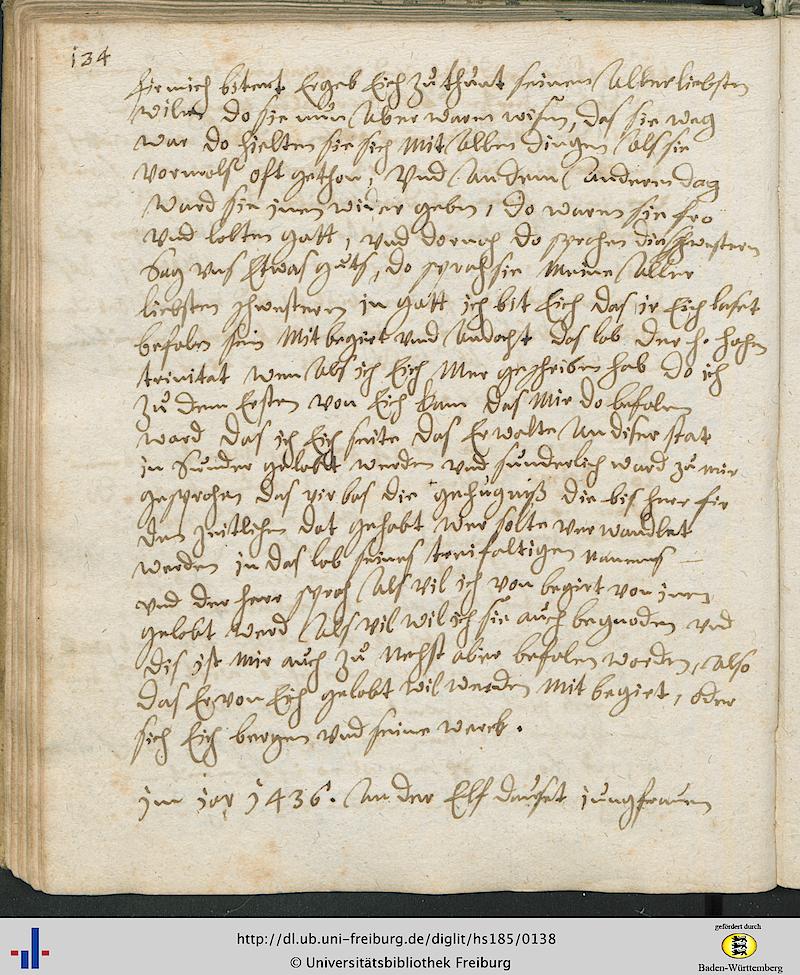 134
fir mich bitent Ergeb Eich zů thůnt seinen Allerliebsten
wilen do sie nun Aber waren wisen, das sie weg
war do hielten sie sich Mit Allen dingen Als sie
vormols oft gethon, vnd An dem Anderen dag
ward sie inen wider geben, do waren sie fro
vnd lobten gott, vnd dornoch do sprochen die schwestern
Sag vns Etwas gůts, do sprach sie Meine Aller
liebsten schwesteren in gott ich bit Eich das ir Eich laset
befolen sein Mit begirt vnd Andocht das lob der h. hochen
trinitat wen Als ich Eich Mer geschriben hab do ich
zů dem Ersten von Eich kam das Mir do befolen
ward das ich Eich seite das Er wolte An diser stat
in Sunder gelobt werden vnd sunderlich ward zů mir
gesprochen das vir bas die gehügniß die bis her fir
den zeitlichen dot gehabt wer solte ver wandlet
werden in das lob seines treifaltigen namens
vnd der herr sprach Als vil ich von begirt von inen
gelobt werd Als vil wil ich sie auch begnoden vnd
dis ist Mir auch zů Nechst aber befolen worden, Also
das Er von Eich gelobt wil werden Mit begirt, oder
sich Eich bergen vnd seine werck.
im ior 1436. An der Elf dausent iungfrauen
http://dl.ub.uni-freiburg.de/diglit/hs185/0138
© Universitätsbibliothek Freiburg
gefördert durch
Baden-Württemberg